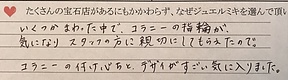 たくさんの宝石店があるにもかかわらず、なぜジュエルミキを選んで頂い
いくつかまわった中で、コラニーの指輪が、
気になり スタッフの方に親切にしてもらえたので。
コラニーの付け心地と、デザインがすごい気に入りました。